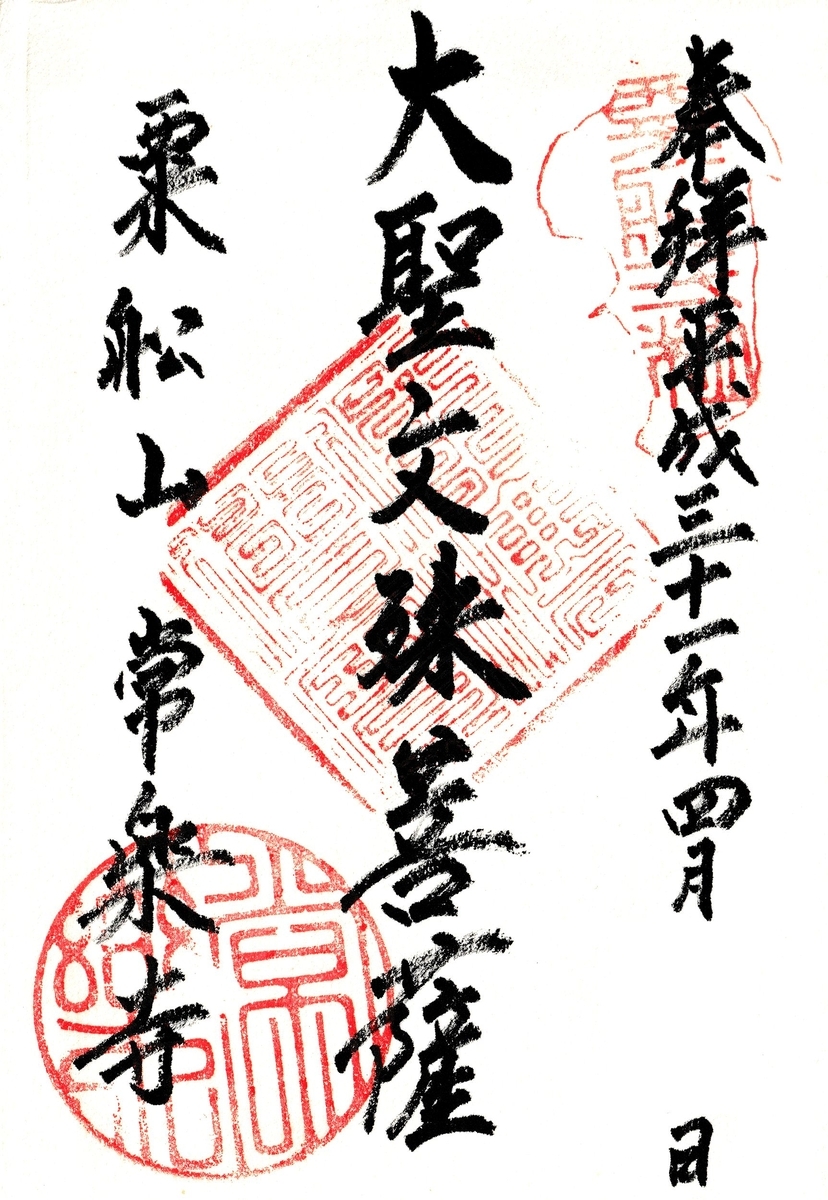 奉拝 平成三十一年四月 日
大聖文殊菩薩
粟船山 常楽寺